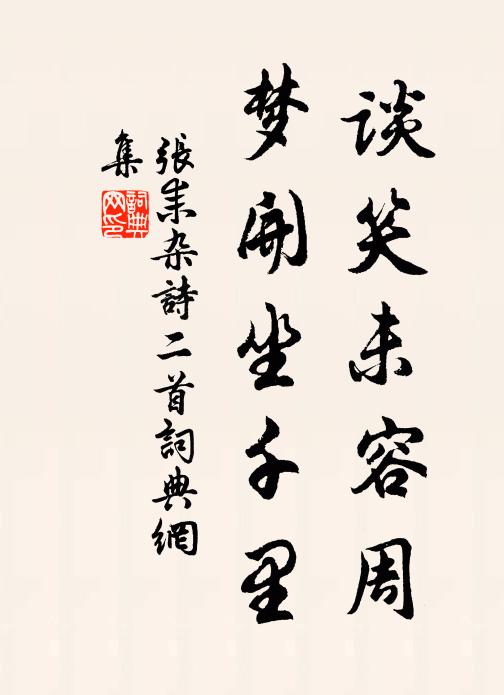 談笑未容周
梦開坐千里
張耒杂詩二首詞典網
集
詞典
网印